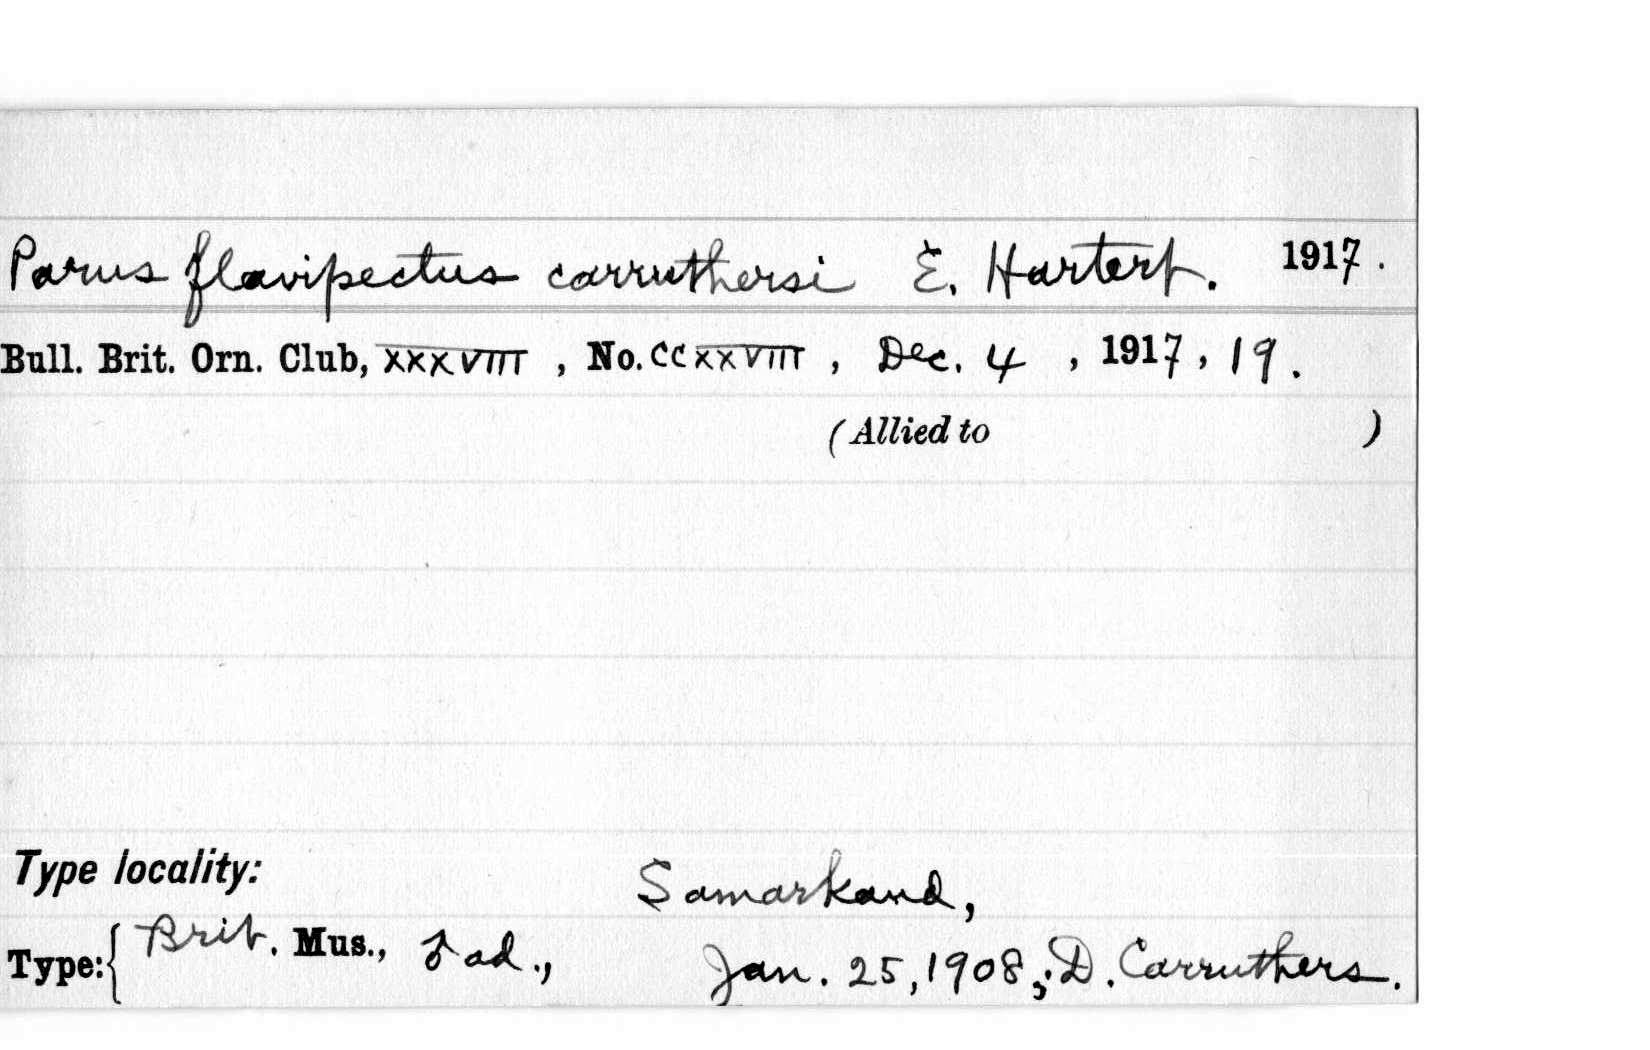 Parus flavipectus carruthersi E. Hartert. 1917.
Bull. Brit. Orn. Club, XXXVIII, No. CCXXVIII, Dec. 4, 1917, 19.
(Allied to )
Type locality: Samarkand,
Type: { Brit. Mus., ♂ ad., Jan. 25, 1908; D. Carruthers.